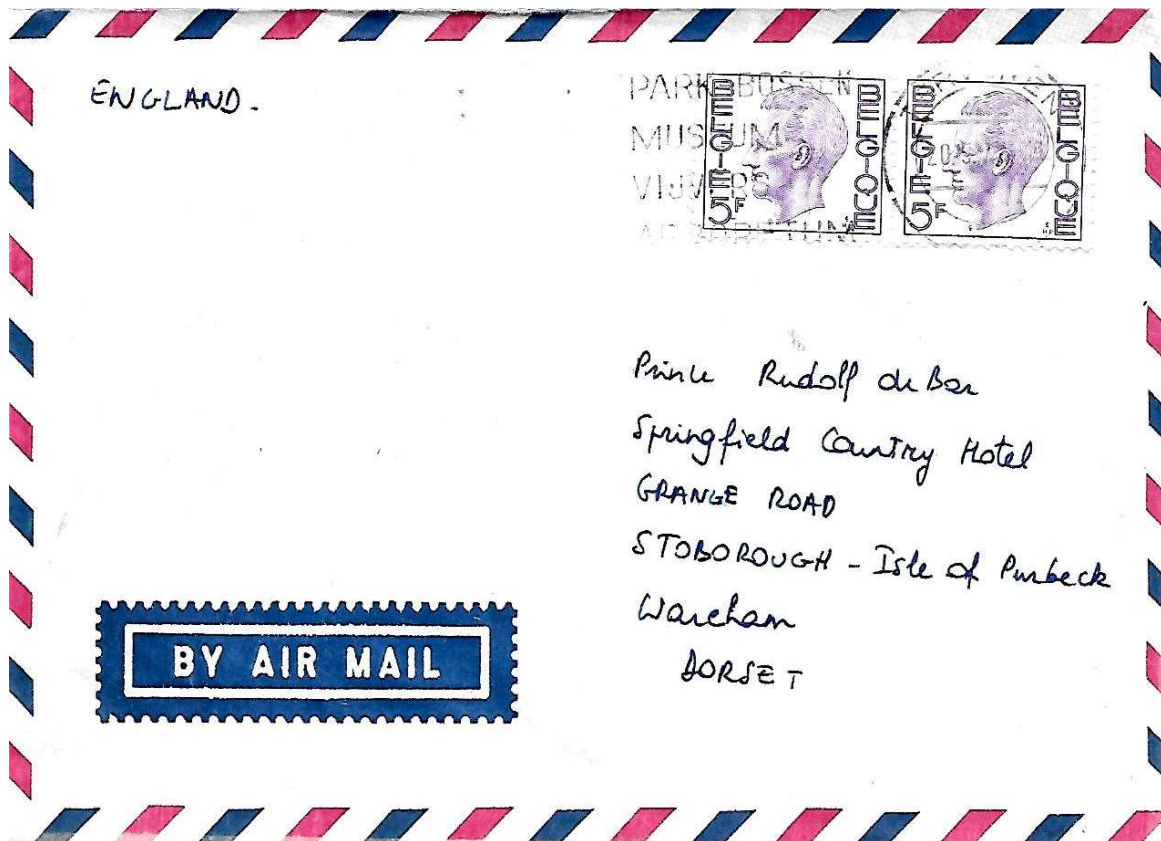 ENGLAND.
PARK BOSSEN
MUSEUM
VIJVERS
ARBORETUM
BELGIE BELGIQUE
5F
BELGIE BELGIQUE
5F
Prince Rudolf de Bar
Springfield Country Hotel
GRANGE ROAD
STOBOROUGH - Isle of Purbeck
Wareham
DORSET
BY AIR MAIL